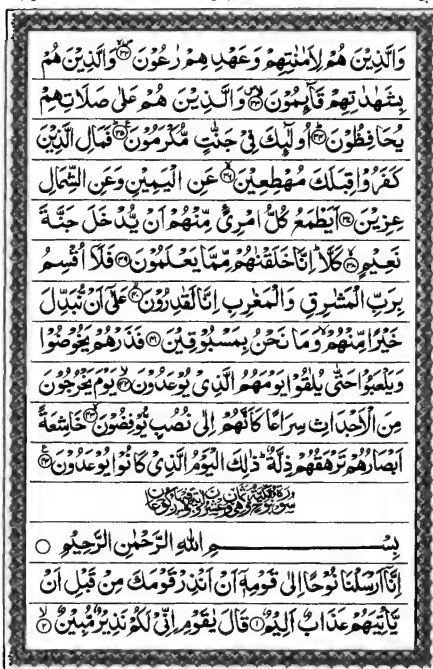 وَالَّذِيْنَ هُمْ لِاَمٰنٰتِهِمْ وَعَهْدِهِمْ رٰعُوْنَ ۝۳۲ وَالَّذِيْنَ هُمْ
بِشَهٰدٰتِهِمْ قَآىِٕمُوْنَ ۝۳۳ وَالَّذِيْنَ هُمْ عَلٰى صَلَاتِهِمْ
يُحَافِظُوْنَ ۝۳۴ اُولٰٓىِٕكَ فِيْ جَنّٰتٍ مُّكْرَمُوْنَ ۝۳۵ فَمَالِ الَّذِيْنَ
كَفَرُوْا قِبَلَكَ مُهْطِعِيْنَ ۝۳۶ عَنِ الْيَمِيْنِ وَعَنِ الشِّمَالِ
عِزِيْنَ ۝۳۷ اَيَطْمَعُ كُلُّ امْرِئٍ مِّنْهُمْ اَنْ يُّدْخَلَ جَنَّةَ
نَعِيْمٍ ۝۳۸ كَلَّا ؕ اِنَّا خَلَقْنٰهُمْ مِّمَّا يَعْلَمُوْنَ ۝۳۹ فَلَاۤ اُقْسِمُ
بِرَبِّ الْمَشٰرِقِ وَالْمَغٰرِبِ اِنَّا لَقٰدِرُوْنَ ۝۴۰ عَلٰۤى اَنْ نُّبَدِّلَ
خَيْرًا مِّنْهُمْ ۙ وَمَا نَحْنُ بِمَسْبُوْقِيْنَ ۝۴۱ فَذَرْهُمْ يَخُوْضُوْا
وَيَلْعَبُوْا حَتّٰى يُلٰقُوْا يَوْمَهُمُ الَّذِيْ يُوْعَدُوْنَ ۝۴۲ يَوْمَ يَخْرُجُوْنَ
مِنَ الْاَجْدَاثِ سِرَاعًا كَاَنَّهُمْ اِلٰى نُصُبٍ يُّوْفِضُوْنَ ۝۴۳ خَاشِعَةً
اَبْصَارُهُمْ تَرْهَقُهُمْ ذِلَّةٌ ؕ ذٰلِكَ الْيَوْمُ الَّذِيْ كَانُوْا يُوْعَدُوْنَ ۝۴۴
بِسْمِ اللّٰهِ الرَّحْمٰنِ الرَّحِيْمِ ۝
اِنَّاۤ اَرْسَلْنَا نُوْحًا اِلٰى قَوْمِهٖۤ اَنْ اَنْذِرْ قَوْمَكَ مِنْ قَبْلِ اَنْ
يَّاْتِيَهُمْ عَذَابٌ اَلِيْمٌ ۝۱ قَالَ يٰقَوْمِ اِنِّيْ لَكُمْ نَذِيْرٌ مُّبِيْنٌ ۝۲